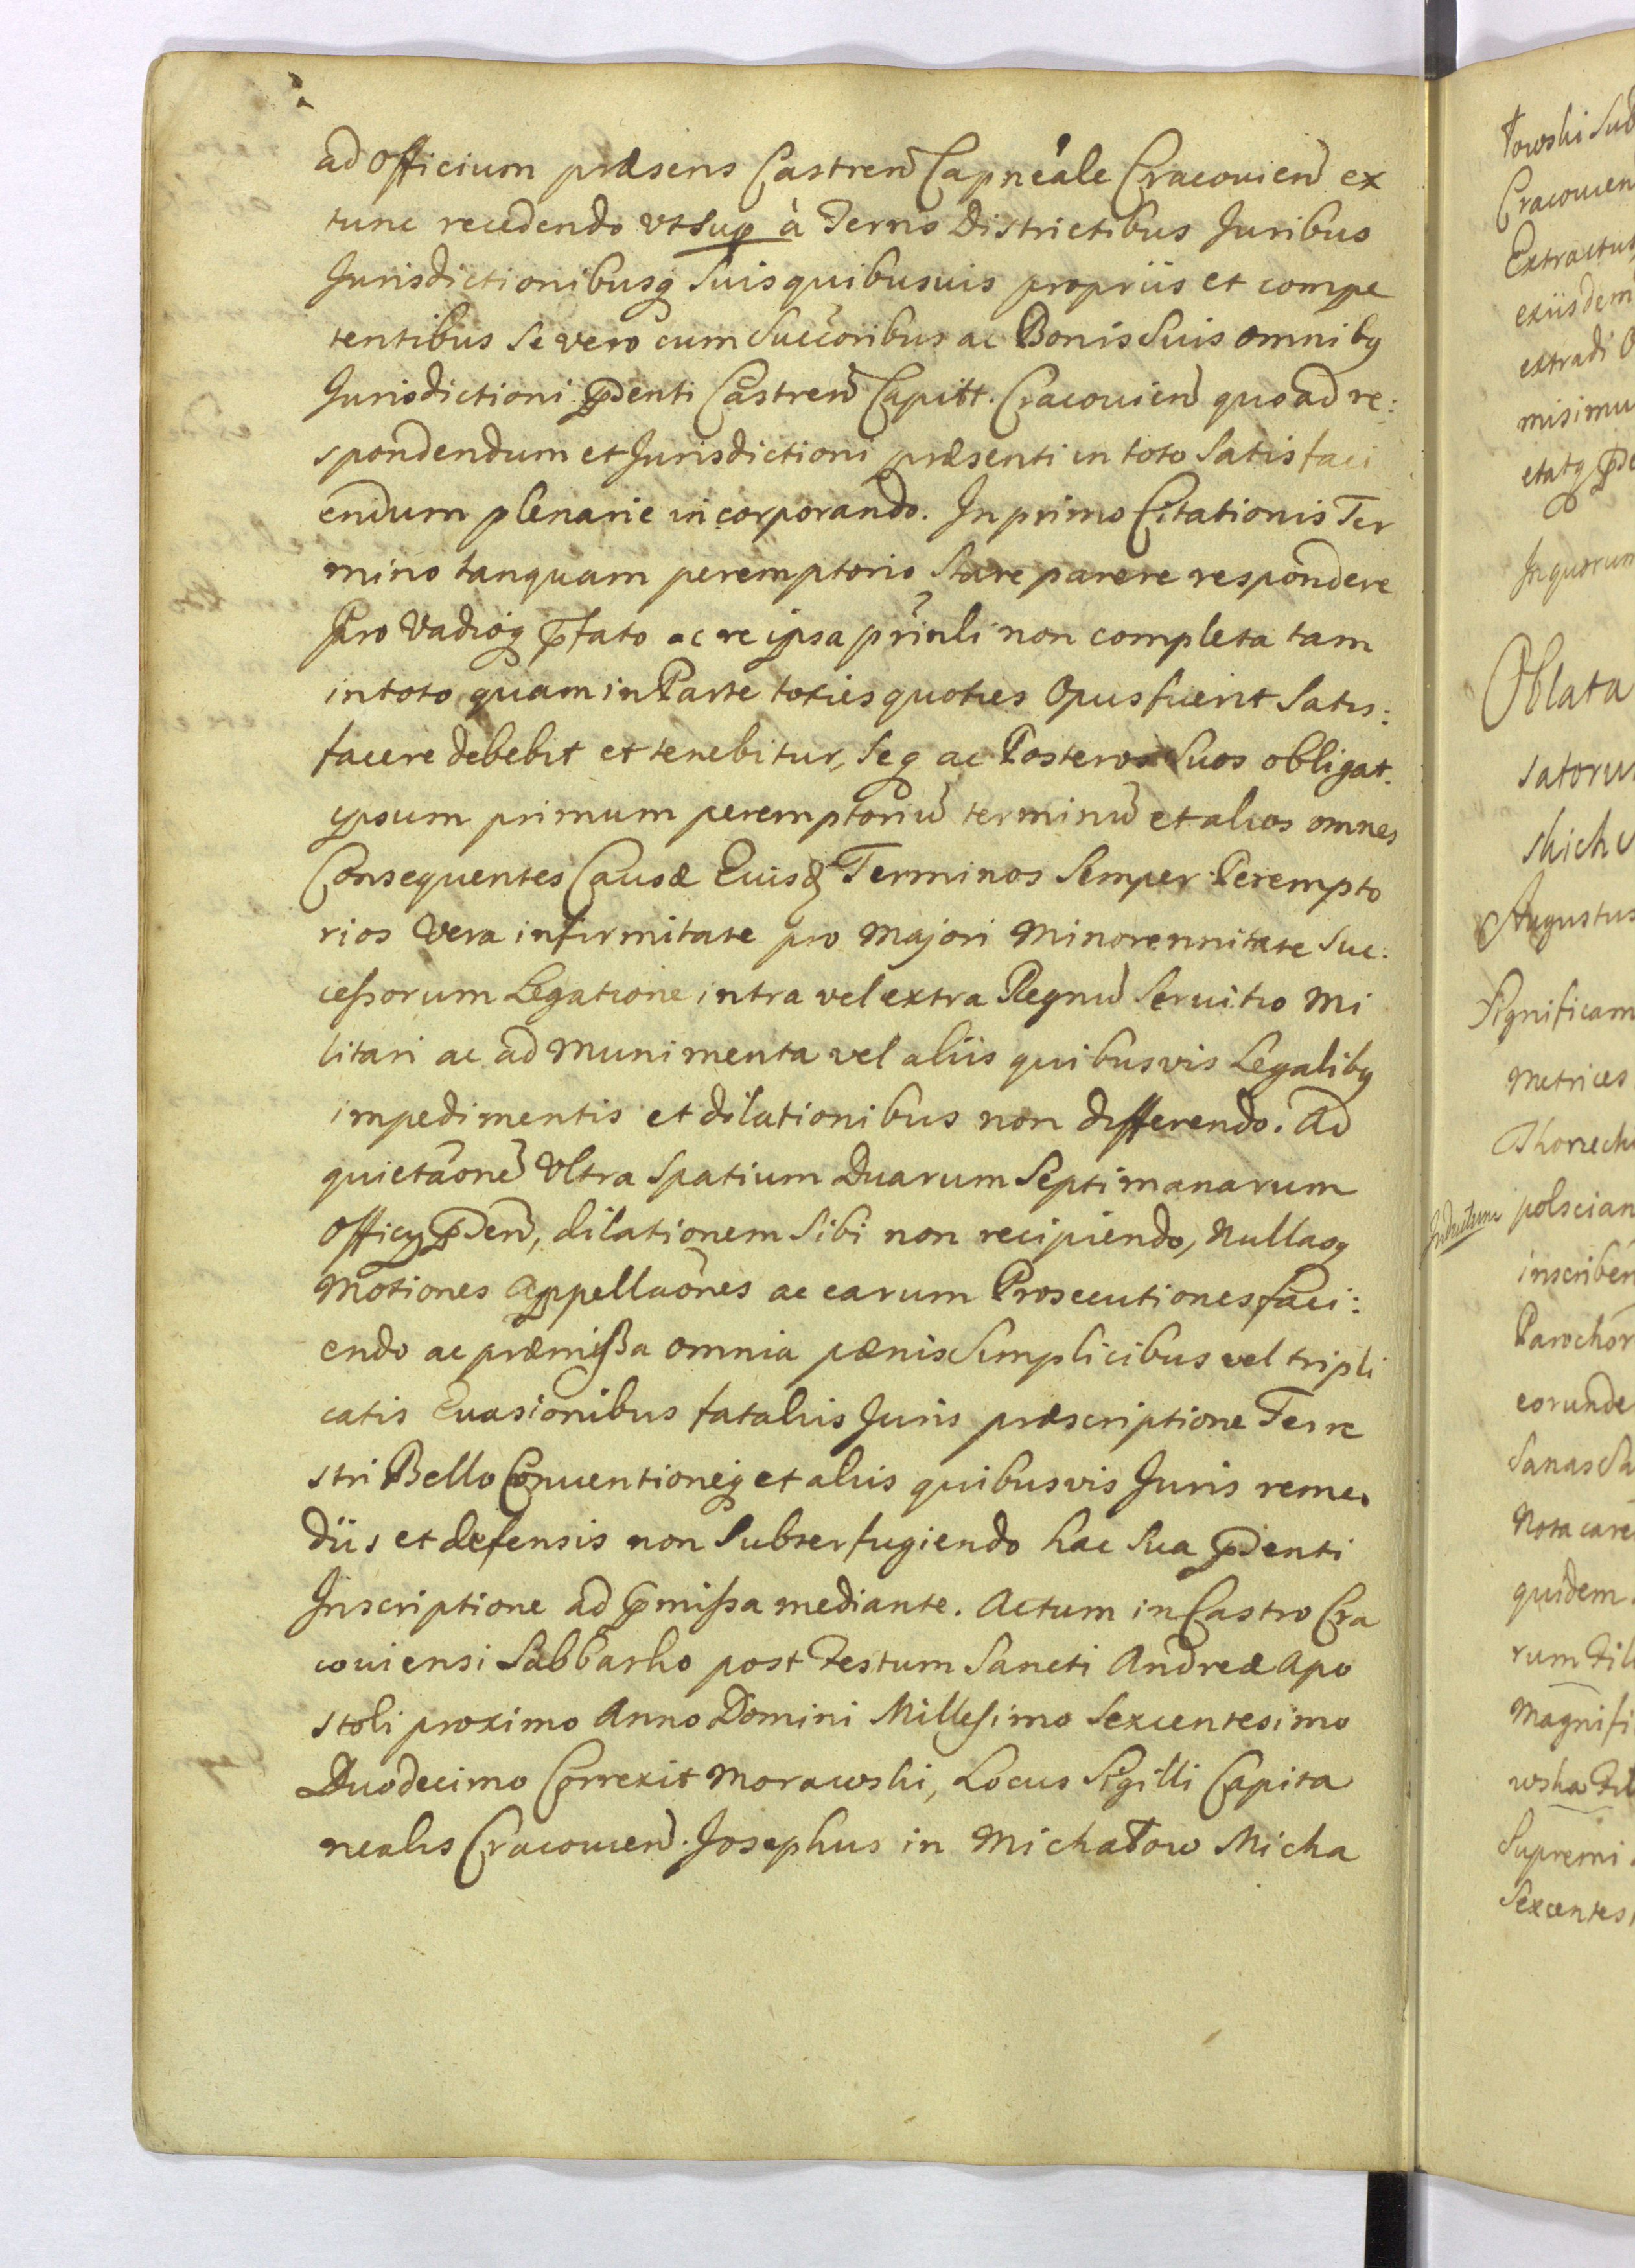 ad Officium præsens Castren̄ Capneále Cracouien̄ ex
tunc recedendo vt Sup à Terris Districtibus Juribus
Jurisdictionibusq Suis quibusuis propriis et compe
tentibus Se vero cum Succoribus ac Bonis Suis omnibq
Jurisdictioni p̄denti Castren̄ Capitt. Cracouien̄ quo ad re:
spondendum et Jurisdictioni præsenti in toto Satisfaci
endum plenarie incorporando. In primo Citationis Ter
mino tanquam peremptorio Stare parere respondere
Pro Vadioq p̄fato ac re ipsa prīnli non completa tam
in toto quam in Parte toties quoties Opus fuerit Satis:
facere debebit et tenebitur, Seq ac Posteros Suos obligat.
ipsum primum peremptoriū terminū et alios omnes
Consequentes Causæ Euisd Terminos Semper Perempto
rios Vera infirmitate pro Majori Minorennitate Suc:
cessorum Legatione intra vel extra Regnū Seruitio Mi
litari ac ad Munimenta vel aliis quibusvis Legalibq
impedimentis et dilationibus non differendo. Ad
quietāonē Vltra Spatium Duarum Septimanarum
Officy p̄den̄, dilationem Sibi non recipiendo, Nullasq
Motiones Appellaōnes ac earum Prosecutiones faci:
endo ac præmissa omnia pænis Simplicibus vel tripli
catis Euasionibus fataliis Juris præscriptione Terre
stri Bello Conuentioneq et aliis quibusvis Juris reme
diis et defensis non Subterfugiendo hac Sua p̄denti
Inscriptione ad p̄missa mediante. Actum in Castro Cra
couiensi Sabbatho post Festum Sancti Andreæ Apo
stoli proximo Anno Domini Millesimo Sexcentesimo
Duodecimo Correxit Morawski, Locus Sigilli Capita
nealis Cracouien̄. Josephus in Michałow Micha
łowski Sud
Cracouien
Extractus
exiisdem
extradi O
misimu
etatq p̄de
In quorum
Oblata
satoru
skich
Augustus
Significam
Metrices
polscian
inscriben
Parochor
eorunde
Sanas Sa
Nota care
quidem
rum Fil
Magnifi
wska Fil
Supremi
Sexcentes